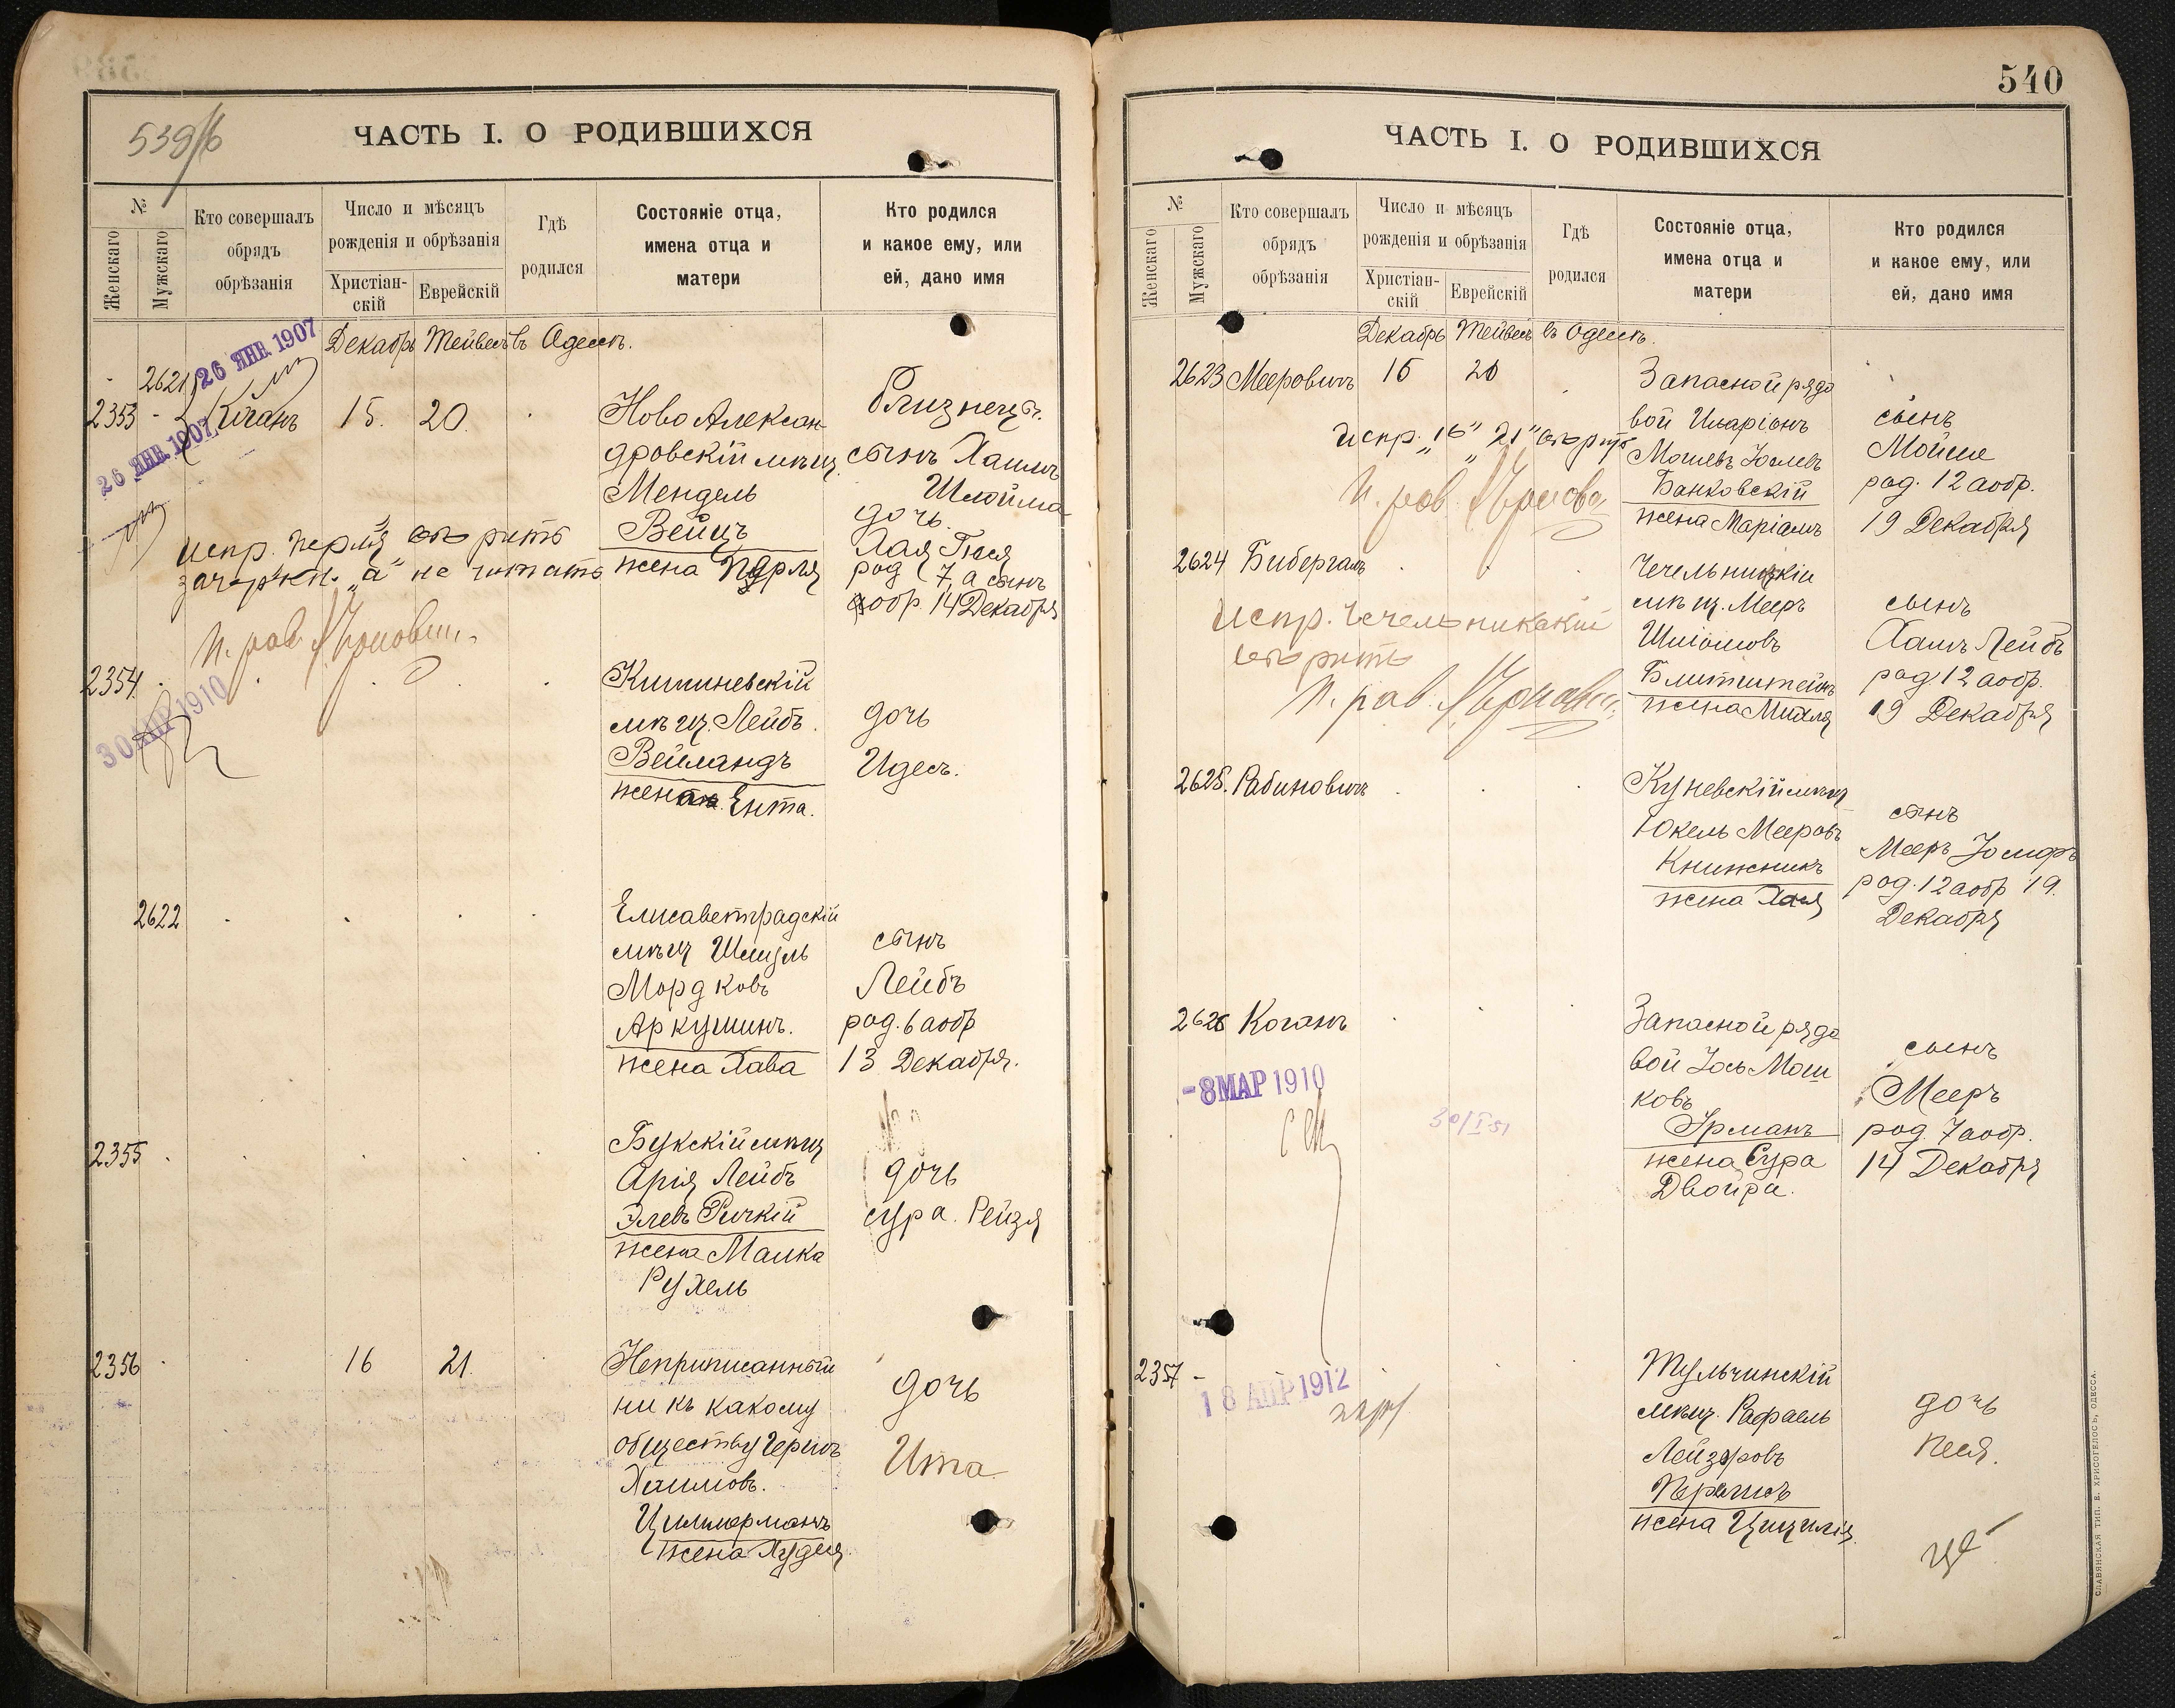 539/б
ЧАСТЬ I. О РОДИВШИХСЯ
№
Женскаго
Мужскаго
Кто совершалъ
обрядъ
обрѣзанія
Число и мѣсяцъ
рожденія и обрѣзанія
Христіан-
скій
Еврейскій
Гдѣ
родился
Состояніе отца,
имена отца и
матери
Кто родился
и какое ему, или
ей, дано имя
26 ЯНВ. 1907
Декабрь Тейвесъ въ Одессѣ.
2621
2353 - Коганъ 15. 20.
26 ЯНВ. 1907
Ново Алексан-
дровскій мѣщ.
Мендель
Вейцъ
жена Перля
Близнецы.
сынъ Хаимъ
Шлойма
дочь.
Хая Гися
род 7, а сынъ
аобр. 14 Декабря
испр. Перля вѣрить
зачеркн. „а" не читать
2354
30 АПР 1910
Кишиневскій
мѣщ. Лейбъ
Вейландъ
жена Ента.
дочь
Идесъ.
2622
Елисаветградскій
мѣщ Шмуль
Мордковъ
Аркушинъ.
жена Хава
сынъ
Лейбъ
род. 6 аобр
13 Декабря.
2355
Букскій мѣщ
Арія Лейбъ
Элевъ Ричкій
жена Малка
Рухель
дочь
Сура. Рейзя
2356 16 21.
Неприписанный
ни къ какому
обществу Гершъ
Хаимовъ.
Циммерманъ
жена Худея
дочь
Ита
540
ЧАСТЬ I. О РОДИВШИХСЯ
№
Женскаго
Мужскаго
Кто совершалъ
обрядъ
обрѣзанія
Число и мѣсяцъ
рожденія и обрѣзанія
Христіан-
скій
Еврейскій
Гдѣ
родился
Состояніе отца,
имена отца и
матери
Кто родился
и какое ему, или
ей, дано имя
Декабрь Тейвесъ въ Одессѣ.
2623 Мееровичъ 16 21
Запасной рядо
вой Иларіонъ
Мошевъ Іослевъ
Банковскій
жена Маріамъ
сынъ
Мойше
род. 12 аобр.
19 Декабря
Испр. „16" „21" вѣрить
2624 Бибергалъ
Чечельницкій
мѣщ. Мееръ
Шліомовъ
Блитштейнъ
жена Михля
сынъ
Хаимъ Лейбъ
род. 12 аобр.
19 Декабря
Испр. Чечельникскій
вѣрить
2625. Рабиновичъ
Куневскій мѣщ
Юкель Мееровъ
Книжникъ
жена Хая
сынъ
Мееръ Іосифъ
род. 12 аобр 19.
Декабря
2626 Коганъ
-8 МАР 1910
30/I 51
Запасной рядо
вой Іось Мош
ковъ
Эрманъ
жена Сура
Двойра.
сынъ
Мееръ
род. 7 аобр.
14 Декабря
2357 -
18 АПР 1912
Тульчинскій
мѣщ. Рафаель
Лейзеровъ
Перлисъ
жена Цицилія
дочь
Песя.
СЛАВЯНСКАЯ ТИП. Е. ХРИСОГЕЛОСЪ, ОДЕССА.